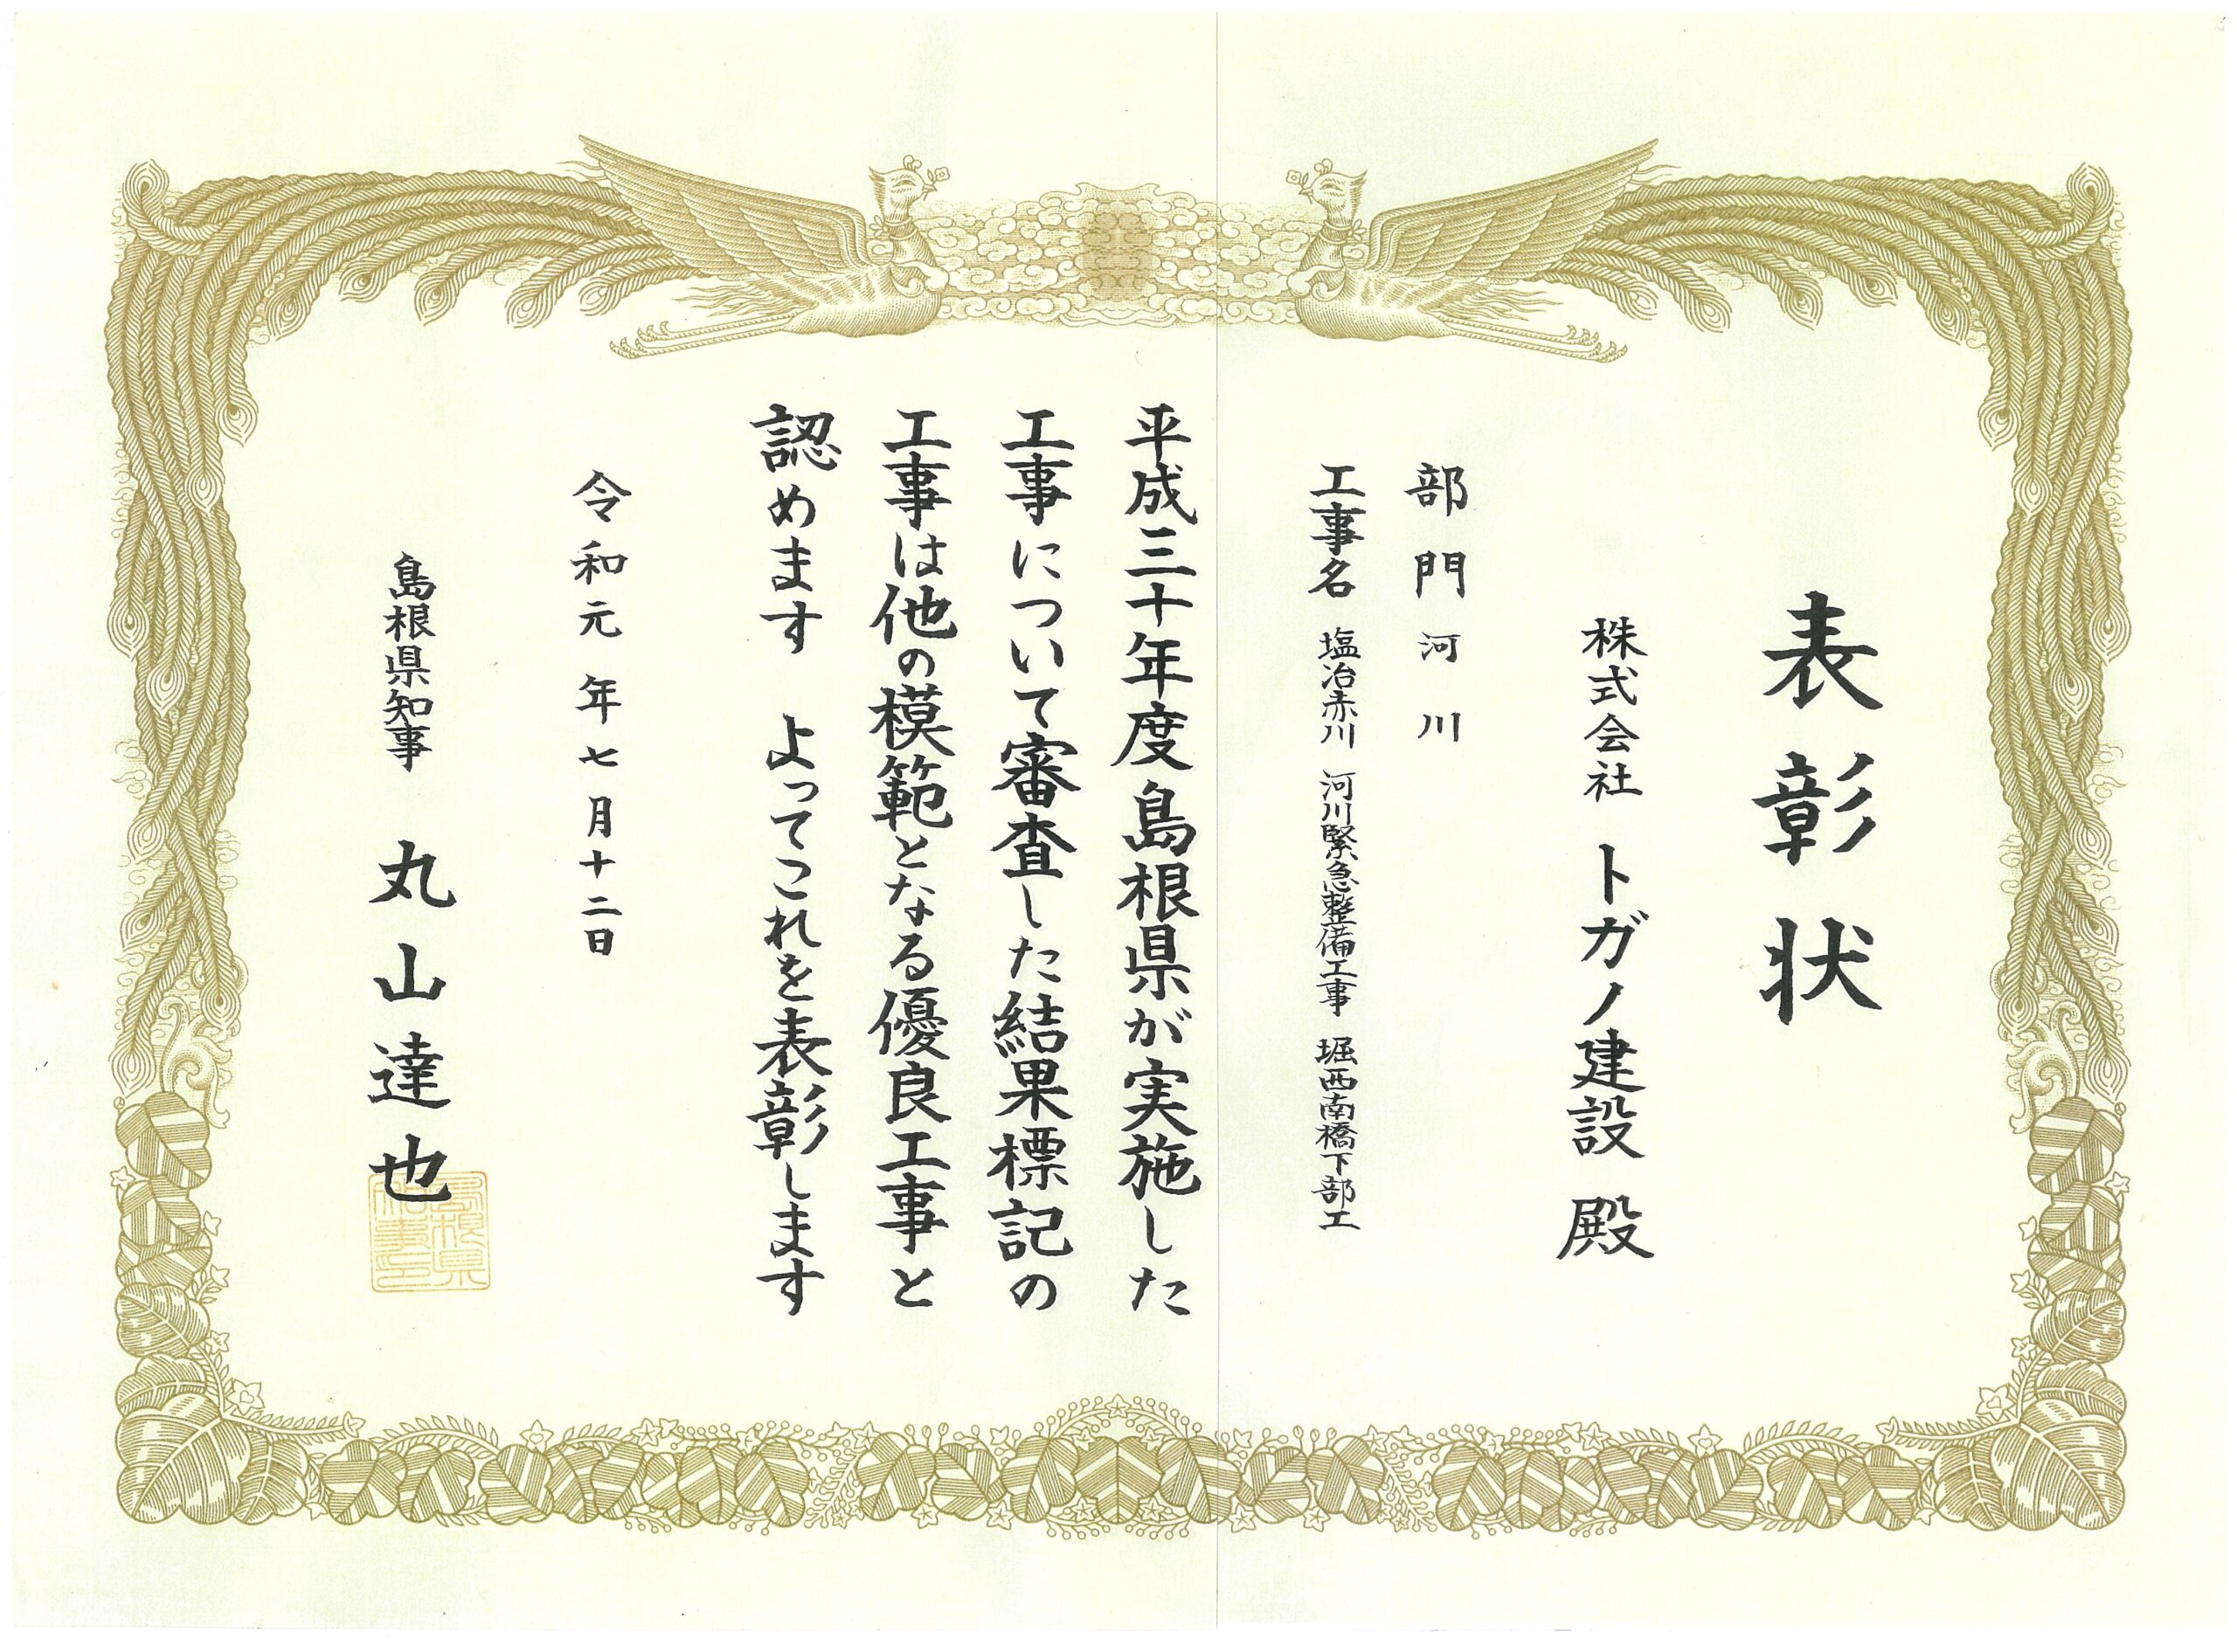 表彰状
株式会社 トガノ建設 殿
部門 河川
工事名 塩冶赤川 河川緊急整備工事 堀西南橋下部工
平成三十年度島根県が実施した
工事について審査した結果標記の
工事は他の模範となる優良工事と
認めます よってこれを表彰します
令和元年七月十二日
島根県知事 丸山達也
島根県知事印